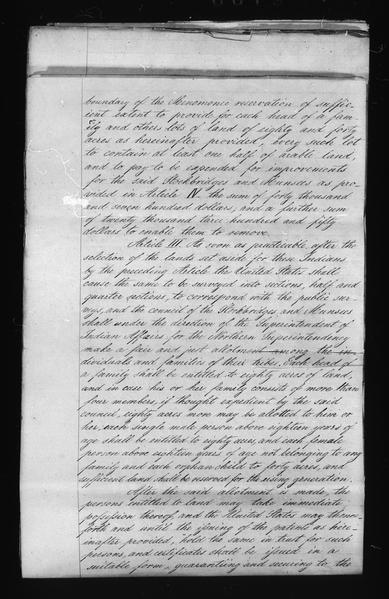 boundary of the Menomonee reservation of suffic-
ient extent to provide for each head of a fam-
ily and others lots of land of eighty and forty
acres as hereinafter provided, every such lot
to contain at least one half of arable land,
and to pay to be expended for improvements
for the said Stockbridges and Munsees as pro-
vided in Article IV. the sum of forty thousand
and seven hundred dollars, and a further sum
of twenty thousand three hundred and fifty
dollars to enable them to remove.
Article III. As soon as practicable, after the
selection of the lands set aside for these Indians
by the preceding Article the United States shall
cause the same to be surveyed into sections, half and
quarter sections, to correspond with the public sur-
veys, and the council of the Stockbridges, and Munsees
shall under the direction of the Superintendent of
Indian Affairs for the Northern Superintendency
make a fair and just allotment among the in-
dividuals and families of their tribes. Each head of
a family shall be entitled to eighty acres of land,
and in case his or her family consists of more than
four members, if thought expedient by the said
council, eighty acres more may be allotted to him or
her, each single male person above eighteen years of
age shall be entitled to eighty acres, and each female
person above eighteen years of age not belonging to any
family and each orphan child to forty acres, and
sufficient land shall be reserved for the rising generation.
After the said allotment is made, the
persons entitled to land may take immediate
possession thereof, and the United States may thence-
forth and until the issuing of the patents as here-
inafter provided, hold the same in trust for such
persons, and certificates shall be issued in a
suitable form, guarantiing and securing to the